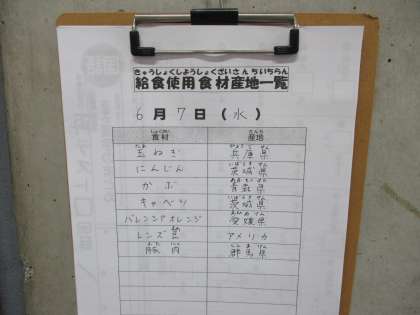 きゅうしょくしようしょくざいさんちいちらん
給食使用食材産地一覧
6月7日（水）
食材 産地
玉ねぎ 兵庫県
にんじん 茨城県
ごぼう 青森県
キャベツ 茨城県
バレンシアオレンジ 愛媛県
レンズ豆 アメリカ
豚肉 群馬県